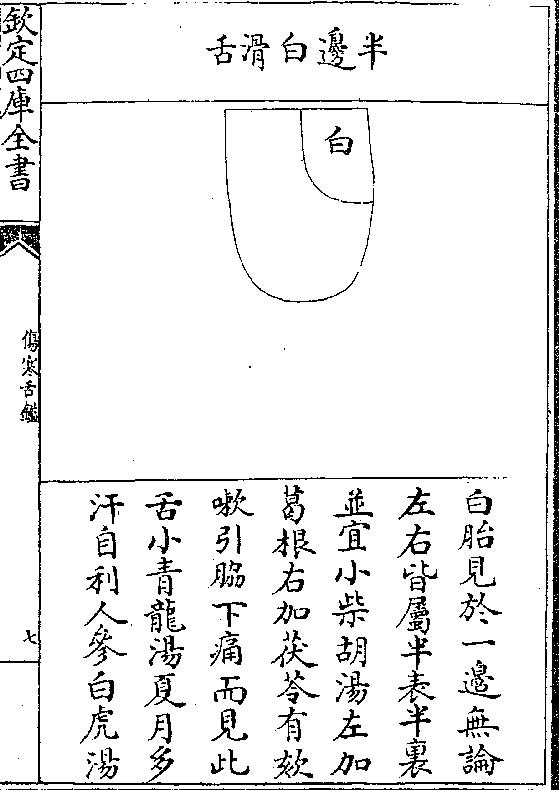 半邊白滑舌
白
白胎見於一邊無論
左右皆屬半表半裏
並宜小柴胡湯左加
葛根右加茯苓有欬
嗽引脇下痛而見此
舌小青龍湯夏月多
汗自利人參白虎湯
欽定四庫全書
傷寒舌鑑
七